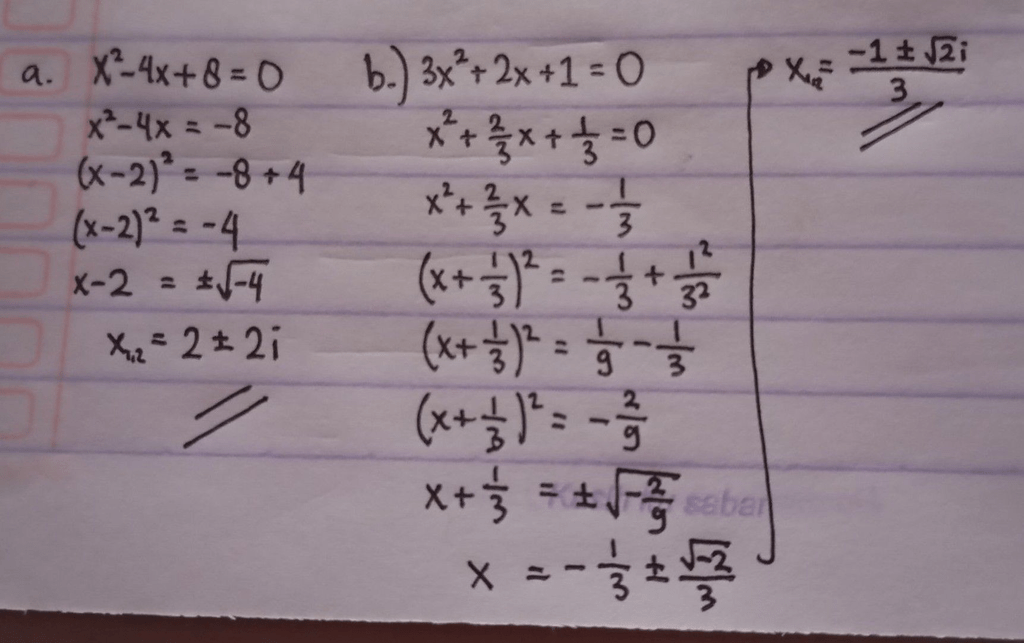 a. x²-4x+8=0
x²-4x = -8
(x-2)² = -8+4
(x-2)² = -4
x-2 = ±√-4
x₁,₂ = 2 ± 2i
b.) 3x²+2x+1=0
x²+2/3x+1/3=0
x²+2/3x = -1/3
(x+1/3)² = -1/3+1²/3²
(x+1/3)² = 1/9-1/3
(x+1/3)² = -2/9
x+1/3 = ±√-2/9
x = -1/3 ± √-2/3
x₁,₂ = -1±√2i/3